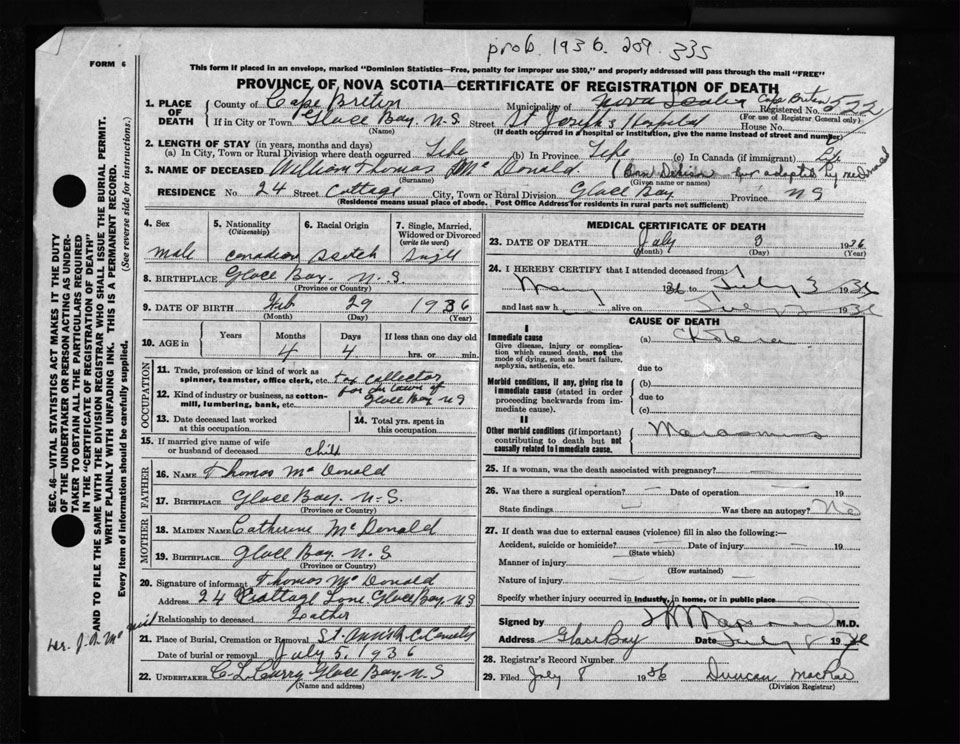 prob. 1936. 209. 335
FORM 6
This form if placed in an envelope, marked "Dominion Statistics—Free, penalty for improper use $300," and properly addressed will pass through the mail "FREE"
PROVINCE OF NOVA SCOTIA—CERTIFICATE OF REGISTRATION OF DEATH
1. PLACE OF DEATH
County of Cape Breton Municipality of Nova Scotia Cape Breton Registered No. 522
(For use of Registrar General only)
If in City or Town Glace Bay. N-S. Street St Joseph's Hospital House No.
(Name) (If death occurred in a hospital or institution, give the name instead of street and number)
2. LENGTH OF STAY (in years, months and days)
(a) In City, Town or Rural Division where death occurred Life (b) In Province Life (c) In Canada (if immigrant) Life
3. NAME OF DECEASED William Thomas McDonald. for adopted by McDonald
(Surname) (Given name or names)
RESIDENCE No. 24 Street Cottage City, Town or Rural Division Glace Bay Province NS
(Residence means usual place of abode. Post Office Address for residents in rural parts not sufficient)
4. Sex
male
5. Nationality
(Citizenship)
canadian
6. Racial Origin
scotch
7. Single, Married, Widowed or Divorced
(write the word)
single
8. BIRTHPLACE Glace Bay. N-S.
(Province or Country)
9. DATE OF BIRTH Feb 29 1936
(Month) (Day) (Year)
10. AGE in Years Months 4 Days 4 If less than one day old
hrs. or min.
OCCUPATION
11. Trade, profession or kind of work as spinner, teamster, office clerk, etc. tax collector
12. Kind of industry or business, as cotton-mill, lumbering, bank, etc. for the town of Glace Bay NS
13. Date deceased last worked at this occupation
14. Total yrs. spent in this occupation
15. If married give name of wife or husband of deceased child
FATHER
16. NAME Thomas McDonald
17. BIRTHPLACE Glace Bay. N-S.
(Province or Country)
MOTHER
18. MAIDEN NAME Catherine McDonald
19. BIRTHPLACE Glace Bay. N.S.
(Province or Country)
20. Signature of informant Thomas McDonald
Address 24 Cottage Lane Glace Bay, NS
Relationship to deceased Father
21. Place of Burial, Cremation or Removal St. Ann's R.C. Cemetery
Date of burial or removal July 5. 1936
22. UNDERTAKER C.L. Curry Glace Bay, N.S
(Name and address)
MEDICAL CERTIFICATE OF DEATH
23. DATE OF DEATH July 3 1936
(Month) (Day) (Year)
24. I HEREBY CERTIFY that I attended deceased from:
May 1936 to July 3 1936
and last saw h alive on July 1936
CAUSE OF DEATH
I
Immediate cause
Give disease, injury or complication which caused death, not the mode of dying, such as heart failure, asphyxia, asthenia, etc.
(a) Cholera
due to
Morbid conditions, if any, giving rise to immediate cause (stated in order proceeding backwards from immediate cause).
(b)
due to
(c)
II
Other morbid conditions (if important) contributing to death but not causally related to immediate cause.
Marasmus
25. If a woman, was the death associated with pregnancy?
26. Was there a surgical operation? Date of operation 19
State findings Was there an autopsy? No
27. If death was due to external causes (violence) fill in also the following:—
Accident, suicide or homicide? Date of injury 19
(State which)
Manner of injury
(How sustained)
Nature of injury
Specify whether injury occurred in industry, in home, or in public place
Signed by M.D.
Address Glace Bay Date July 8 19
28. Registrar's Record Number
29. Filed July 8 1936 Duncan MacRae
(Division Registrar)
SEC. 46—VITAL STATISTICS ACT MAKES IT THE DUTY
OF THE UNDERTAKER OR PERSON ACTING AS UNDER-
TAKER TO OBTAIN ALL THE PARTICULARS REQUIRED
IN THE "CERTIFICATE OF REGISTRATION OF DEATH"
AND TO FILE THE SAME WITH THE DIVISION REGISTRAR WHO SHALL ISSUE THE BURIAL PERMIT.
WRITE PLAINLY WITH UNFADING INK. THIS IS A PERMANENT RECORD.
Every item of information should be carefully supplied. (See reverse side for instructions.)